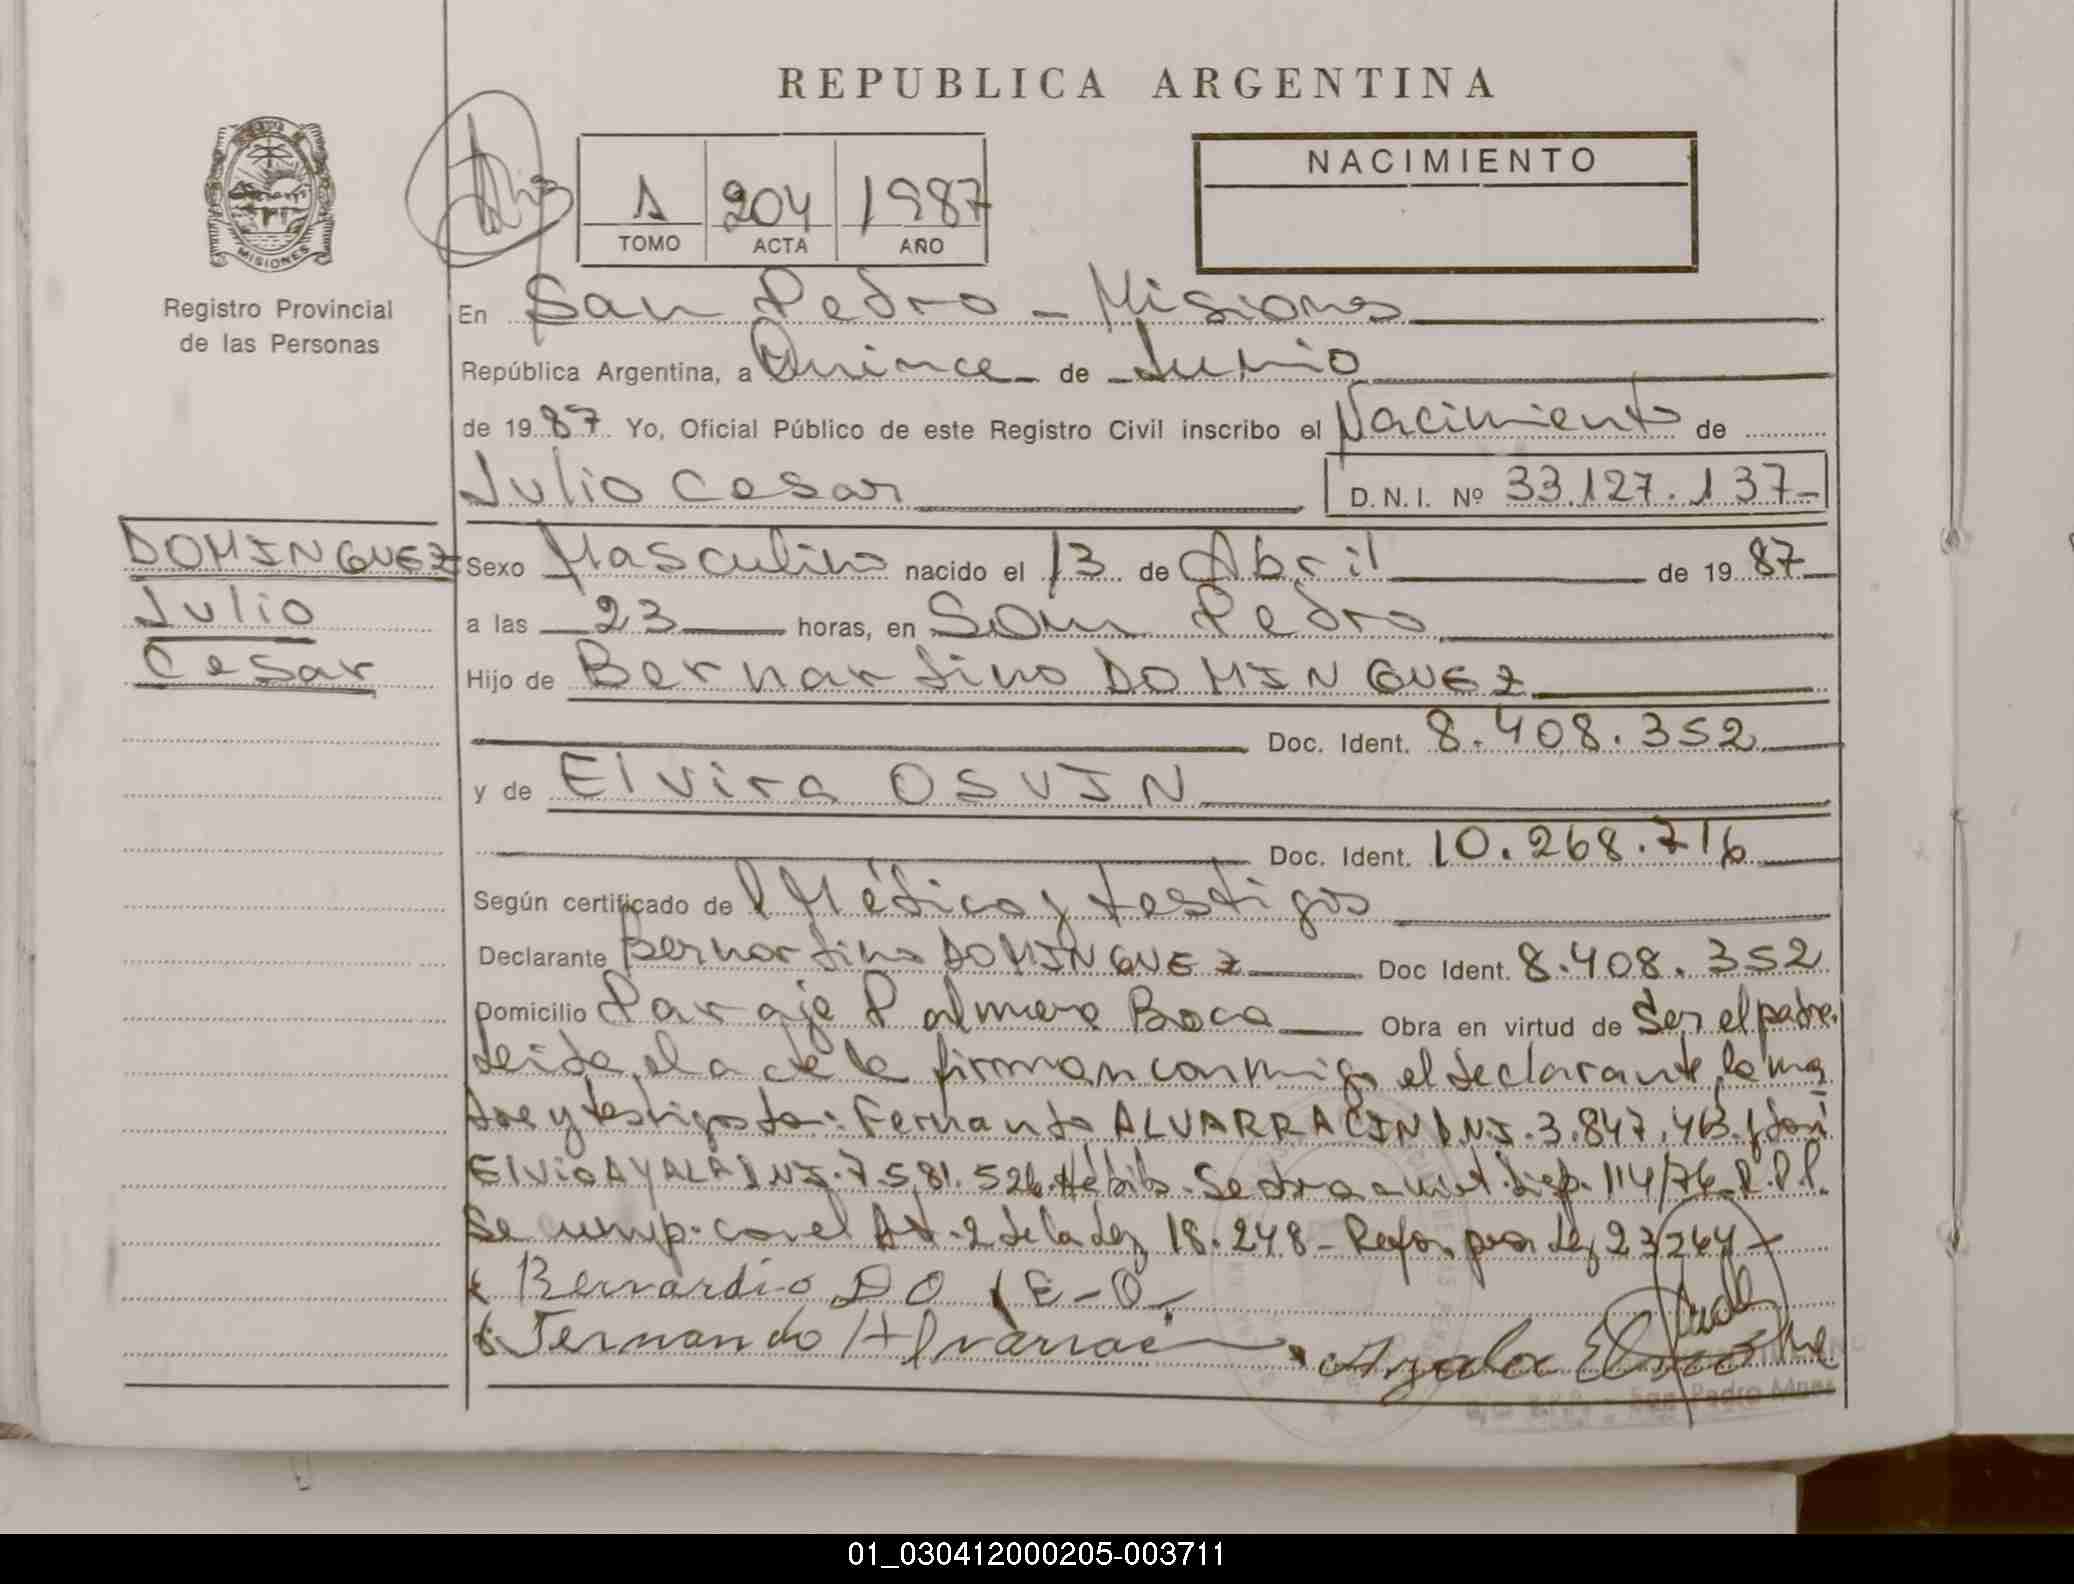 REPUBLICA ARGENTINA
MISIONES
Registro Provincial
de las Personas
1 204 1987
TOMO ACTA AÑO
NACIMIENTO
En San Pedro - Misiones
República Argentina, a Quince de Junio
de 1987 Yo, Oficial Público de este Registro Civil inscribo el Nacimiento de
Julio Cesar D.N.I. Nº 33.127.137
DOMINGUEZ
Julio
Cesar
Sexo Masculino nacido el 13 de Abril de 1987
a las 23 horas, en San Pedro
Hijo de Bernardino DOMINGUEZ
Doc. Ident. 8.408.352
y de Elvira OSVIN
Doc. Ident. 10.268.716
Según certificado de Médico y testigos
Declarante Bernardino DOMINGUEZ Doc Ident. 8.408.352
Domicilio Paraje Palmera Boca Obra en virtud de Ser el padre.
Leida el acta la firman conmigo el declarante, la ma
dre y testigos Fernando ALVARRACIN DNI. 3.847.413 y
Elvio AYALA DNI. 7.581.526 Disp. 114/76 R.P.P.
Se cump. con el Art. 2 de la Ley 18.248 - Refor. por Ley 23264
Bernardio DO
Fernando Alvarrac Ayala Elvio
San Pedro Mnes
01_030412000205-003711